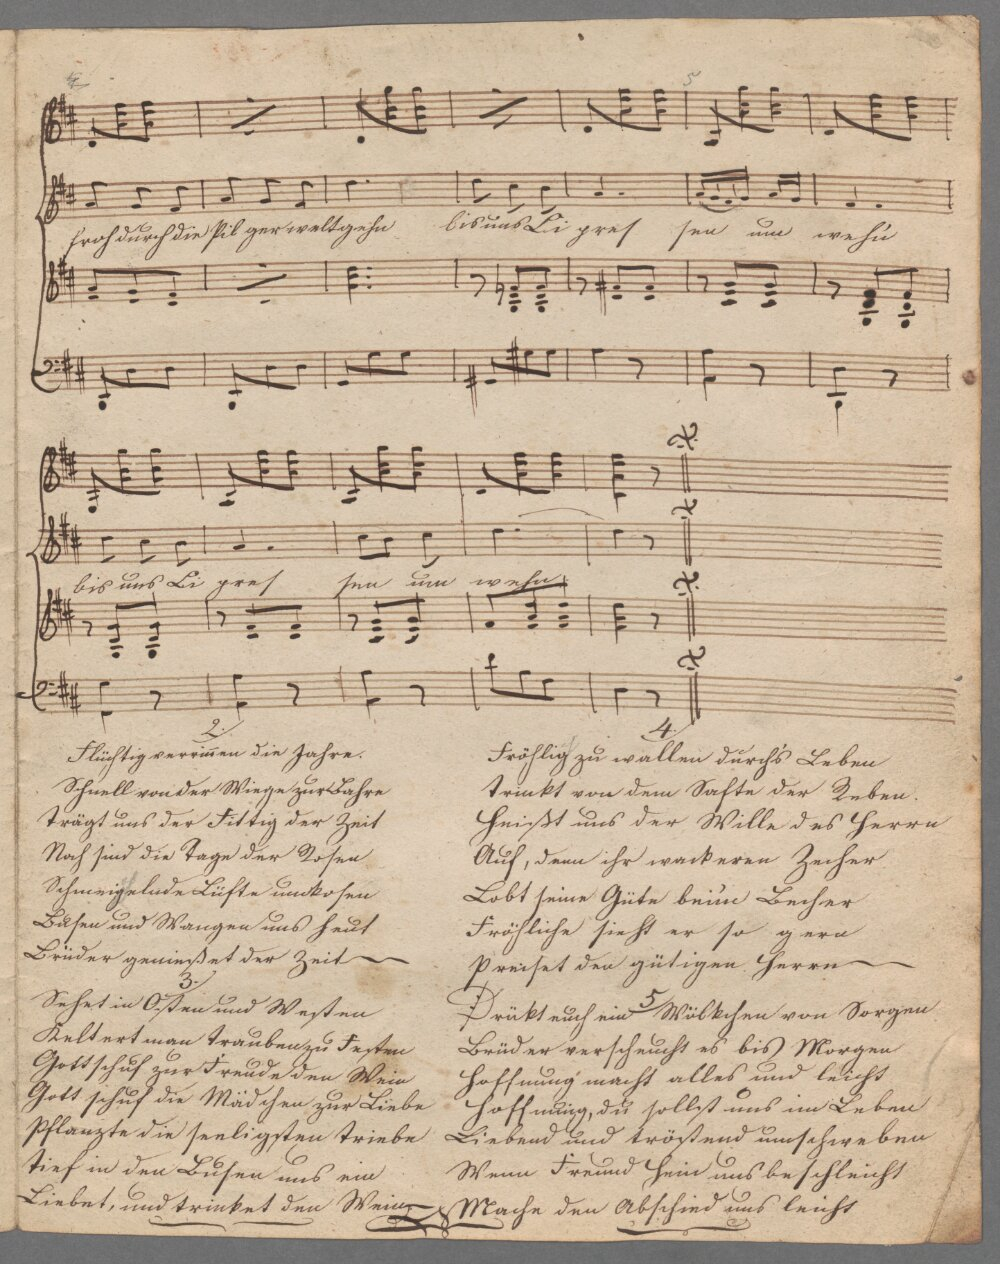 4
5
froh durch die Pil ger welt gehn bis uns Ci pres sen um wehn
bis uns Ci pres sen um wehn
2.
Flüchtig verrinnen die Jahre.
Schnell von der Wiege zur Bahre
trägt uns der Fittig der Zeit
Noch sind die Tage der Rosen
Schmeichelnde Lüfte umkosen
Busen und Wangen uns heut
Brüder genießet der Zeit
3.
Sehet in Osten und Westen
Keltert man trauben zu Festen
Gott schuf zur Freude den Wein
Gott schuf die Mädchen zur Liebe
Pflanzte die seeligsten triebe
tief in den Busen uns ein
Liebet, und trinket den Wein
4
Fröhlig zu wallen durch's Leben
trinkt von dem Safte der Reben.
Heißt uns der Wille des Herrn
Auf, denn ihr wackeren Zecher
Lobt seine Güte beim Becher
Fröhliche sieht er so gern
Preiset den gütigen Herrn
5
Drükt euch ein Wölkchen von Sorgen
Brüder verscheucht es bis Morgen
Hoffnung macht alles uns leicht
Hoffnung, du sollst uns im Leben
Liebend und tröstend umschweben
Wenn Freund Hein uns beschleicht
Mache den Abschied uns leicht